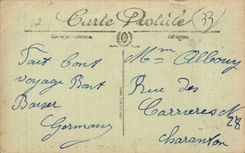 Carte Postale
33
Correspondance
Adresse
Fait bont
voyage Bont
Baiser
Germany
Mme Albouy
Rue des
Carrieres N
28
Charanton